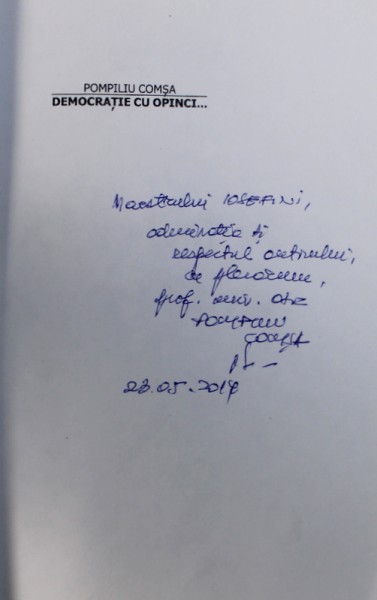 POMPILIU COMȘA
DEMOCRAȚIE CU OPINCI...
Maestrului IOSEFINI,
admirația și
respectul autorului,
cu
prof. univ. 
POMPILIU
COMȘA
23.05.2014